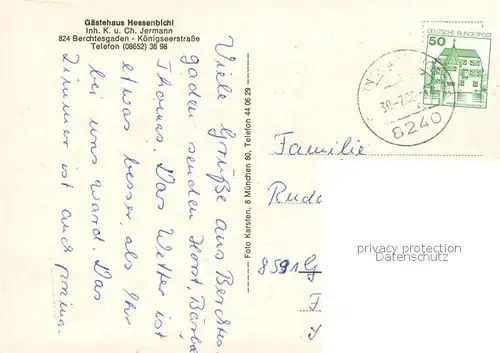 Gästehaus Hessenbichl
Inh. K. u. Ch. Jermann
824 Berchtesgaden - Königseerstraße
Telefon (08652) 36 98
Viele Grüße aus Berchtes
gaden senden Horst, Bärbel
Thomas. Das Wetter ist
etwas besser, als Ihr
bei uns ward. Das
Zimmer ist auch prima.
Foto Karsten, 8 München 80, Telefon 44 06 29
50 DEUTSCHE BUNDESPOST
8240
Familie
8591
privacy protection
Datenschutz